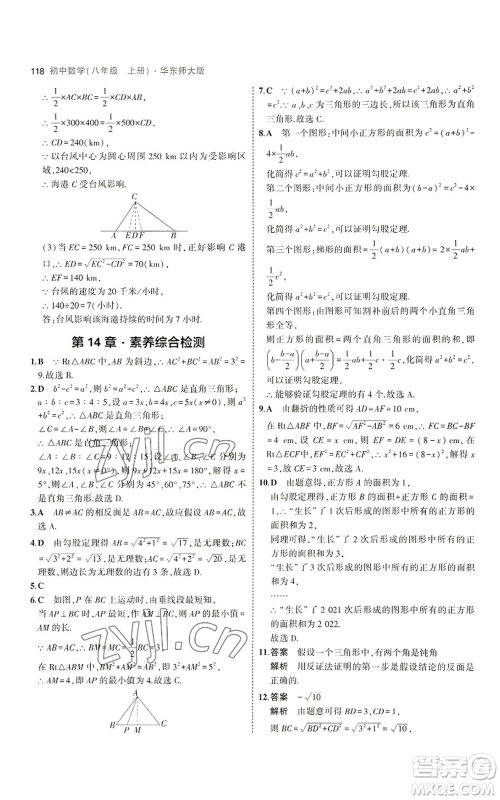 118 初中数学(八年级 上册)·华东师大版
∴ 1/2×AC×BC=1/2×CD×AB,
∴ 1/2×300×400=1/2×500×CD,
∴ CD=240(km).
∵ 以台风中心为圆心周围 250 km 以内为受影响区
域,240<250,
∴ 海港 C 受台风影响.
C
A EDF B
(3)当 EC=250 km,FC=250 km 时,正好影响 C 港
口,∴ ED=√(EC²-CD²)=70(km),
∴ EF=140 km.
∵ 台风的速度为 20 千米/小时,
∴ 140÷20=7(小时).
答:台风影响该海港持续的时间为 7 小时.
第 14 章·素养综合检测
1.B ∵ Rt△ABC 中,AB 为斜边,∴ AC²+BC²=AB²=
9.故选 B.
2.D b²-c²=a²,则 b²=a²+c²,△ABC 是直角三角形;
a∶b∶c=3∶4∶5,设 a=3x,b=4x,c=5x(x≠0),
a²+b²=c²,△ABC 是直角三角形;
∠C=∠A-∠B,则∠A=∠B+∠C,∠A=90°,
△ABC 是直角三角形;
∠A∶∠B∶∠C=9∶12∶15,设∠A、∠B、∠C 分别为
9x,12x,15x(x≠0),则 9x+12x+15x=180°,
∠A=45°,∠B=60°,∠C=75°,△ABC 不
是直角三角形.故选 D.
3.A AB≠AC 的相反面是 AB=AC,故应假设 AB=AC.
故选 A.
4.D 由勾股定理得 AB=√(4²+1²)=√17,BC=
√(3²+2²)=√13,AC=√(4²+2²)=√20,
故选 D.
5.C
6.C 如图,P 在 BC 上运动时,由垂线段最短知,
当 AP⊥BC 时,AP 的值最小,AP 的最小值=
AM 的长,
∵ AB=AC,
∴ BM=1/2BC=3.
在 Rt△ABM 中,AM²+BM²=AB²,
∴ AM=4,∴ AP 的最小值是 4,故选 C.
A
B P M C
7.C ∵ (a+b)²=c²+2ab,∴ (a+b)²-2ab=c²,∴ a²+
b²=c²,∵ a、b、c 为三角形的三边长,所以此三角形为直角
三角形.故选 C.
8.A 第一个图形:中间小正方形的面积为 c²=(a+b)²-
4×1/2ab,
化简得 c²=a²+b²,可以证明勾股定理.
第二个图形:中间小正方形的面积为 (b-a)²=c²-
4×1/2ab,
化简得 a²+b²=c²,可以证明勾股定理.
第三个图形:梯形的面积=1/2(a+b)(a+b)=2×
1/2ab+1/2c²,
化简得 a²+b²=c²,可以证明勾股定理.
第四个图形:由图形可知割补前后的两个小直角三角
形全等,
则正方形的面积=两个直角三角形的面积的和=
(b-(b-a)/2)(a+(b-a)/2)=1/2ab+1/2c·1/2c,
化简得 a²+b²=c²,可以证明勾股定理.
∴ 能够验证勾股定理的有 4 个.故选 A.
9.A 由翻折的性质可得 AD=AF=10 cm,
在 Rt△ABF 中,BF=√(AF²-AB²)=6 cm,∴ FC=BC-BF
=4 cm,设 CE=x cm,则 DE=EF=(8-x)cm,在
Rt△ECF中,EF²=EC²+FC²,∴ x²+16=(8-x)²,解得
x=3,故 CE=3 cm.故选 A.
10.D 由题意得,正方形 A 的面积为 1,
由勾股定理得,正方形 B 的面积+正方形 C 的面积=1,
∴ “生长”了 1 次后形成的图形中所有的正方形的
面积和为 2.
同理可得,“生长”了 2 次后形成的图形中所有的正
方形的面积和为 3,
∴ “生长”了 3 次后形成的图形中所有的正方形的
面积和为 4,
……
∴ “生长”了 2 021 次后形成的图形中所有的正方形
的面积和为 2 022.
故选 D.
11.答案 假设一个三角形中,有两个角是钝角
解析 用反证法证明的第一步是假设结论的反面是正
确的.
12.答案 -√10
解析 由题意可得 BD=3,CD=1,
则 BC=√(BD²+CD²)=√(3²+1²)=√10,
zyjl.cn